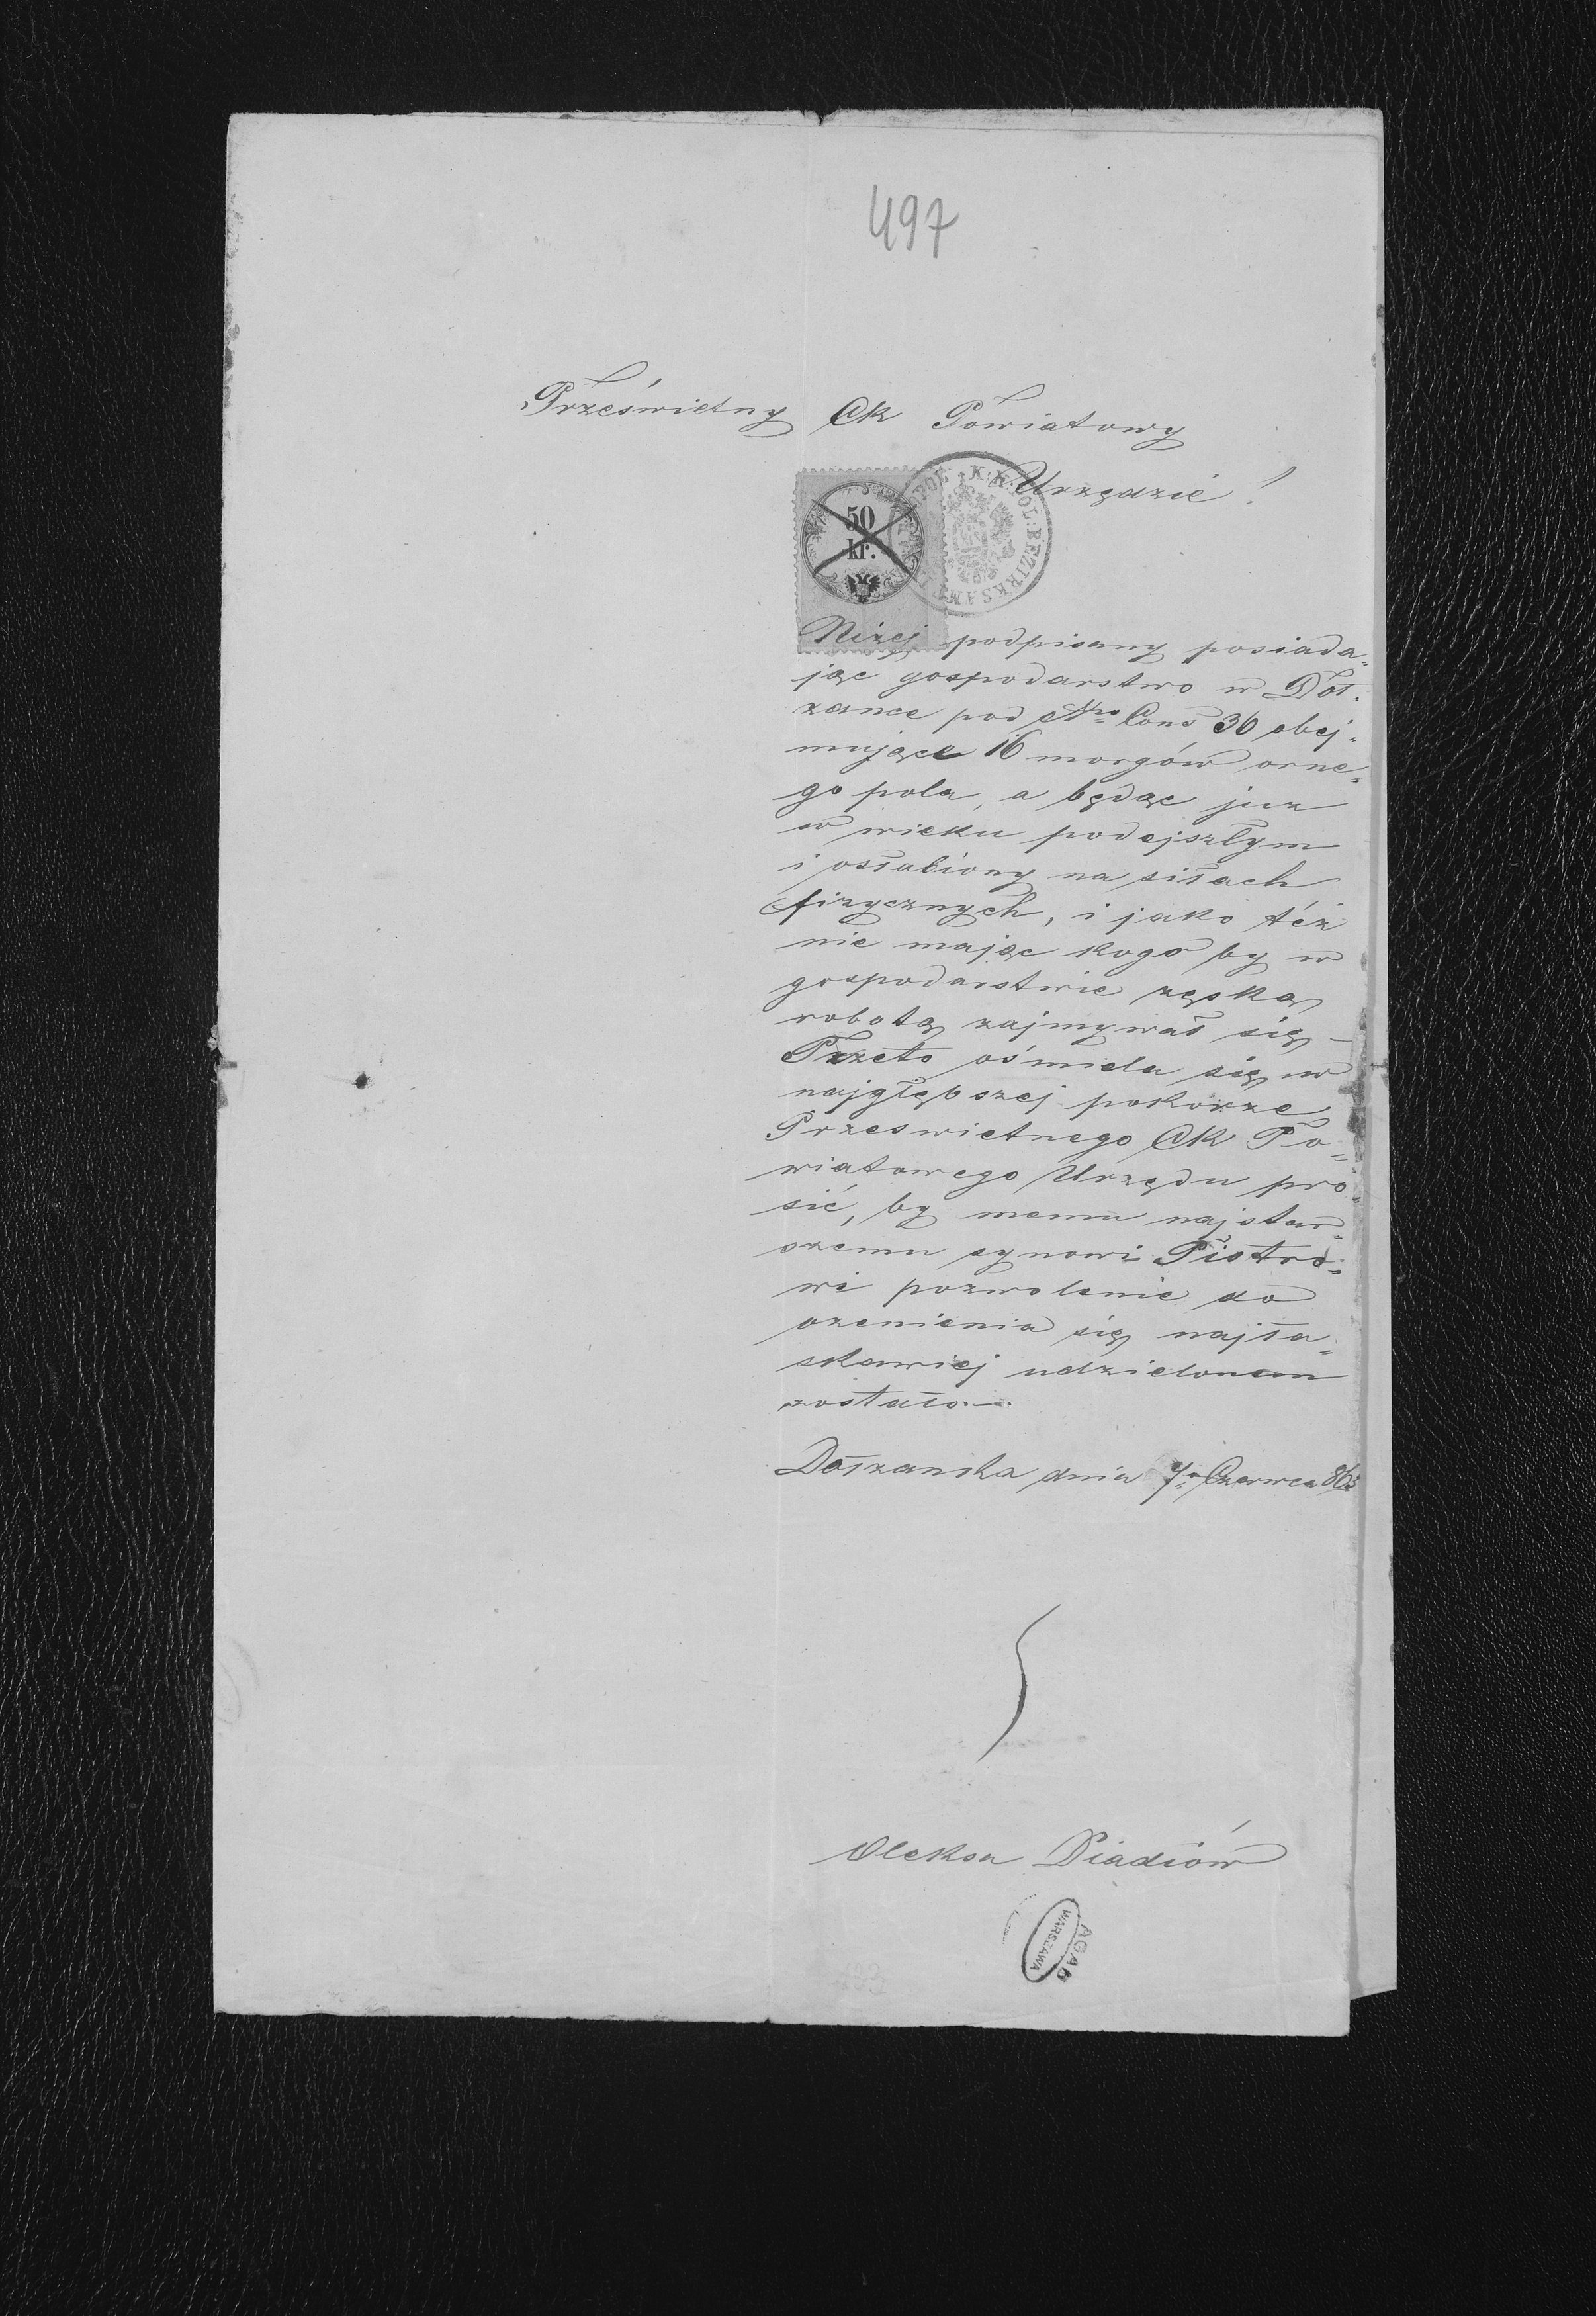 497
Prześwietny CK Powiatowy
Urzędzie!
50
kr.
K:K:POL:BEZIRKSAMT
Niżej podpisany posiada=
jąc gospodarstwo w Doł=
zance pod Nro Cons 36 obej=
mujące 16 morgów orne=
go pola, a będąc juz
w wieku podejszłym
i osłabiony na siłach
fizycznych, i jako téż
nie mając kogo by w
gospodarstwie ręską
robotą zajmywał się –
Przeto ośmiela się w
najgłębszej pokorze
Przeswietnego CK Po=
wiatowego Urzędu pro=
sić, by memu najstar=
szemu synowi Piotro=
wi pozwolenie do
ozenienia się najła=
skawiej udzielonem
zostało.—
Dołzanka dnia 7. Czerwca 863
Oleksa Diadiów
AGAD
WARSZAWA